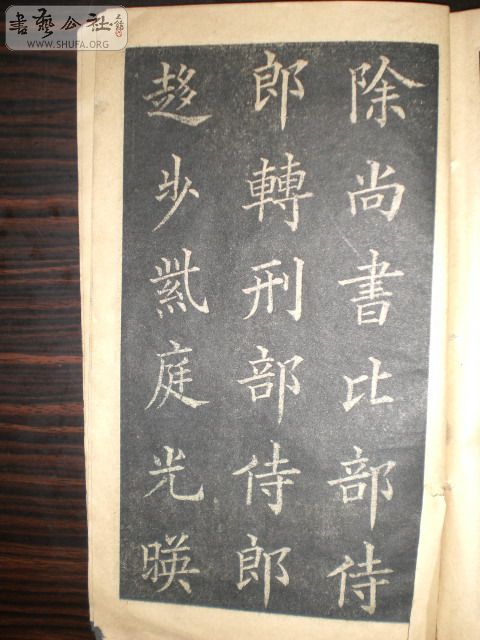 書藝公社
WWW.SHUFA.ORG
除尚書比部侍
郎轉刑部侍郎
趍步紫庭光暎